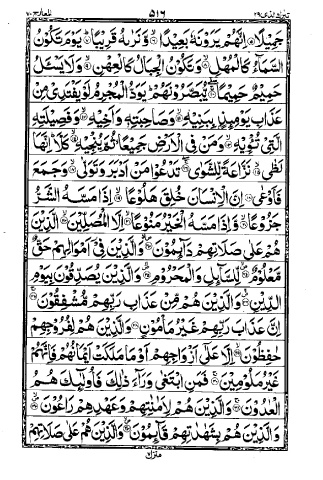 تبٰرك الذى ٢٩ ٥١٦ المعارج ٧٠
جَمِيْلًا ۝ اِنَّهُمْ يَرَوْنَهٗ بَعِيْدًا ۝ وَّنَرٰىهُ قَرِيْبًا ۝ يَوْمَ تَكُوْنُ
السَّمَآءُ كَالْمُهْلِ ۝ وَتَكُوْنُ الْجِبَالُ كَالْعِهْنِ ۝ وَلَا يَسْـَٔلُ
حَمِيْمٌ حَمِيْمًا ۝ يُّبَصَّرُوْنَهُمْ ؕ يَوَدُّ الْمُجْرِمُ لَوْ يَفْتَدِيْ مِنْ
عَذَابِ يَوْمِئِذٍۭ بِبَنِيْهِ ۝ وَصَاحِبَتِهٖ وَاَخِيْهِ ۝ وَفَصِيْلَتِهِ
الَّتِيْ تُـْٔوِيْهِ ۝ وَمَنْ فِي الْاَرْضِ جَمِيْعًا ۙ ثُمَّ يُنْجِيْهِ ۝ كَلَّا ؕ اِنَّهَا
لَظٰى ۝ نَزَّاعَةً لِّلشَّوٰى ۝ تَدْعُوْا مَنْ اَدْبَرَ وَتَوَلّٰى ۝ وَجَمَعَ
فَاَوْعٰى ۝ اِنَّ الْاِنْسَانَ خُلِقَ هَلُوْعًا ۝ اِذَا مَسَّهُ الشَّرُّ
جَزُوْعًا ۝ وَّاِذَا مَسَّهُ الْخَيْرُ مَنُوْعًا ۝ اِلَّا الْمُصَلِّيْنَ ۝ الَّذِيْنَ
هُمْ عَلٰى صَلَاتِهِمْ دَآئِمُوْنَ ۝ وَالَّذِيْنَ فِيْٓ اَمْوَالِهِمْ حَقٌّ
مَّعْلُوْمٌ ۝ لِّلسَّآئِلِ وَالْمَحْرُوْمِ ۝ وَالَّذِيْنَ يُصَدِّقُوْنَ بِيَوْمِ
الدِّيْنِ ۝ وَالَّذِيْنَ هُمْ مِّنْ عَذَابِ رَبِّهِمْ مُّشْفِقُوْنَ ۝
اِنَّ عَذَابَ رَبِّهِمْ غَيْرُ مَاْمُوْنٍ ۝ وَالَّذِيْنَ هُمْ لِفُرُوْجِهِمْ
حٰفِظُوْنَ ۝ اِلَّا عَلٰٓى اَزْوَاجِهِمْ اَوْ مَا مَلَكَتْ اَيْمَانُهُمْ فَاِنَّهُمْ
غَيْرُ مَلُوْمِيْنَ ۝ فَمَنِ ابْتَغٰى وَرَآءَ ذٰلِكَ فَاُولٰٓئِكَ هُمُ
الْعٰدُوْنَ ۝ وَالَّذِيْنَ هُمْ لِاَمٰنٰتِهِمْ وَعَهْدِهِمْ رٰعُوْنَ ۝
وَالَّذِيْنَ هُمْ بِشَهٰدٰتِهِمْ قَآئِمُوْنَ ۝ وَالَّذِيْنَ هُمْ عَلٰى صَلَاتِهِمْ
منزل